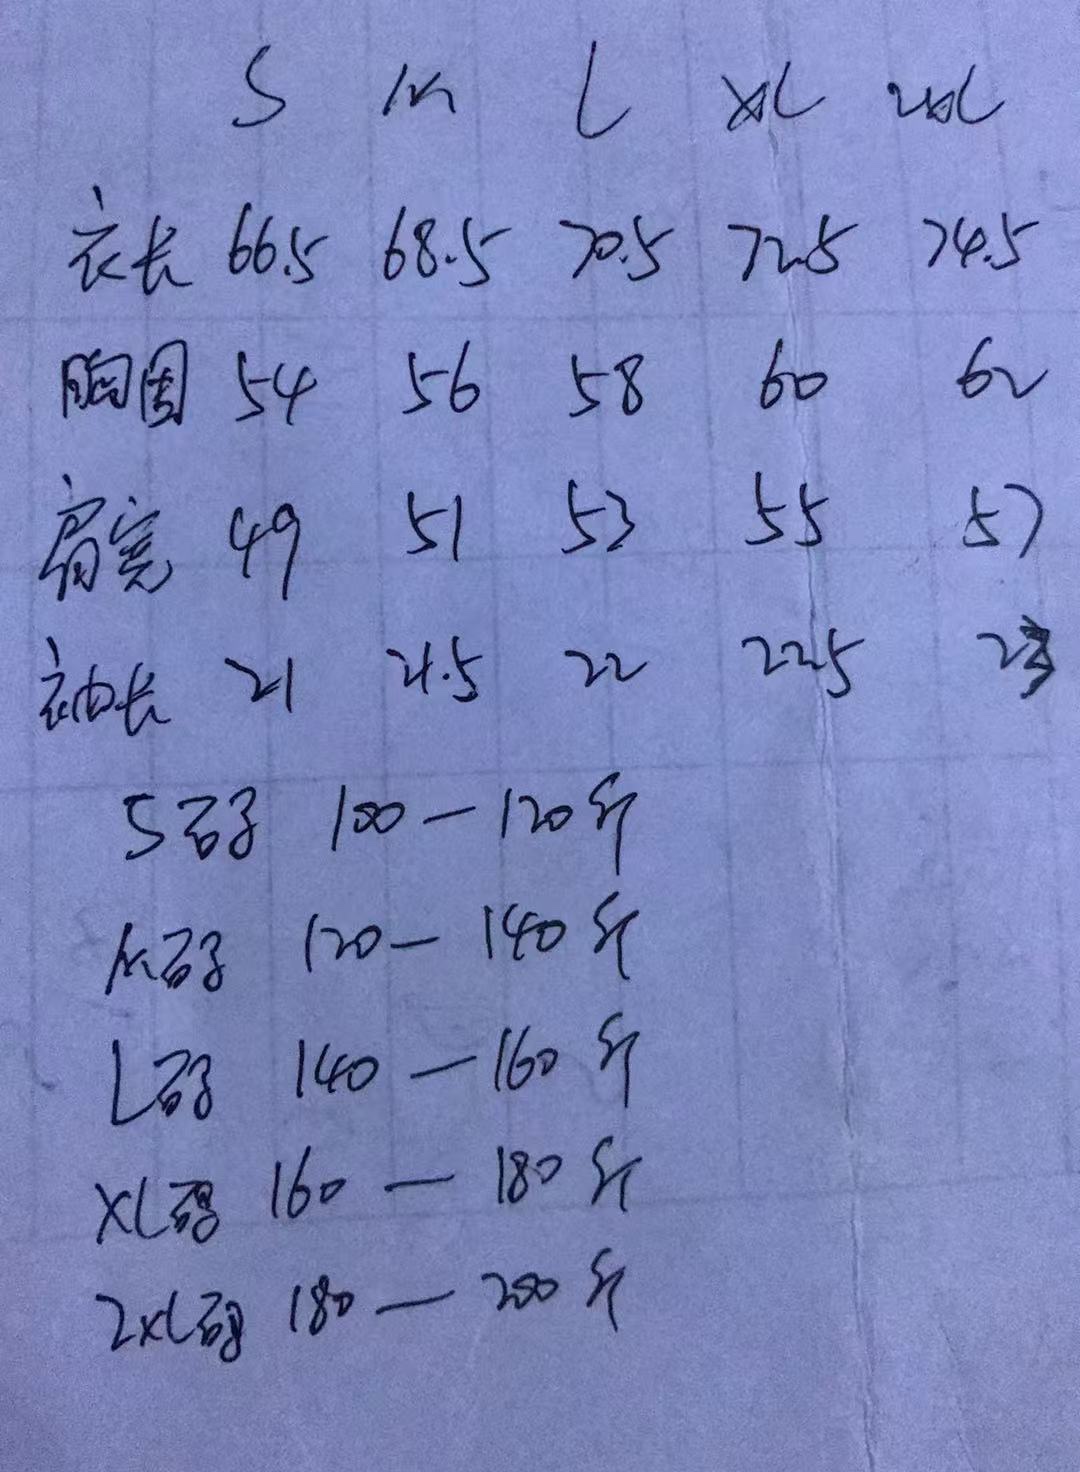 S M L XL 2XL
衣长 66.5 68.5 70.5 72.5 74.5
胸围 54 56 58 60 62
肩宽 49 51 53 55 57
袖长 21 21.5 22 22.5 23
S码 100—120斤
M码 120—140斤
L码 140—160斤
XL码 160—180斤
2XL码 180—200斤